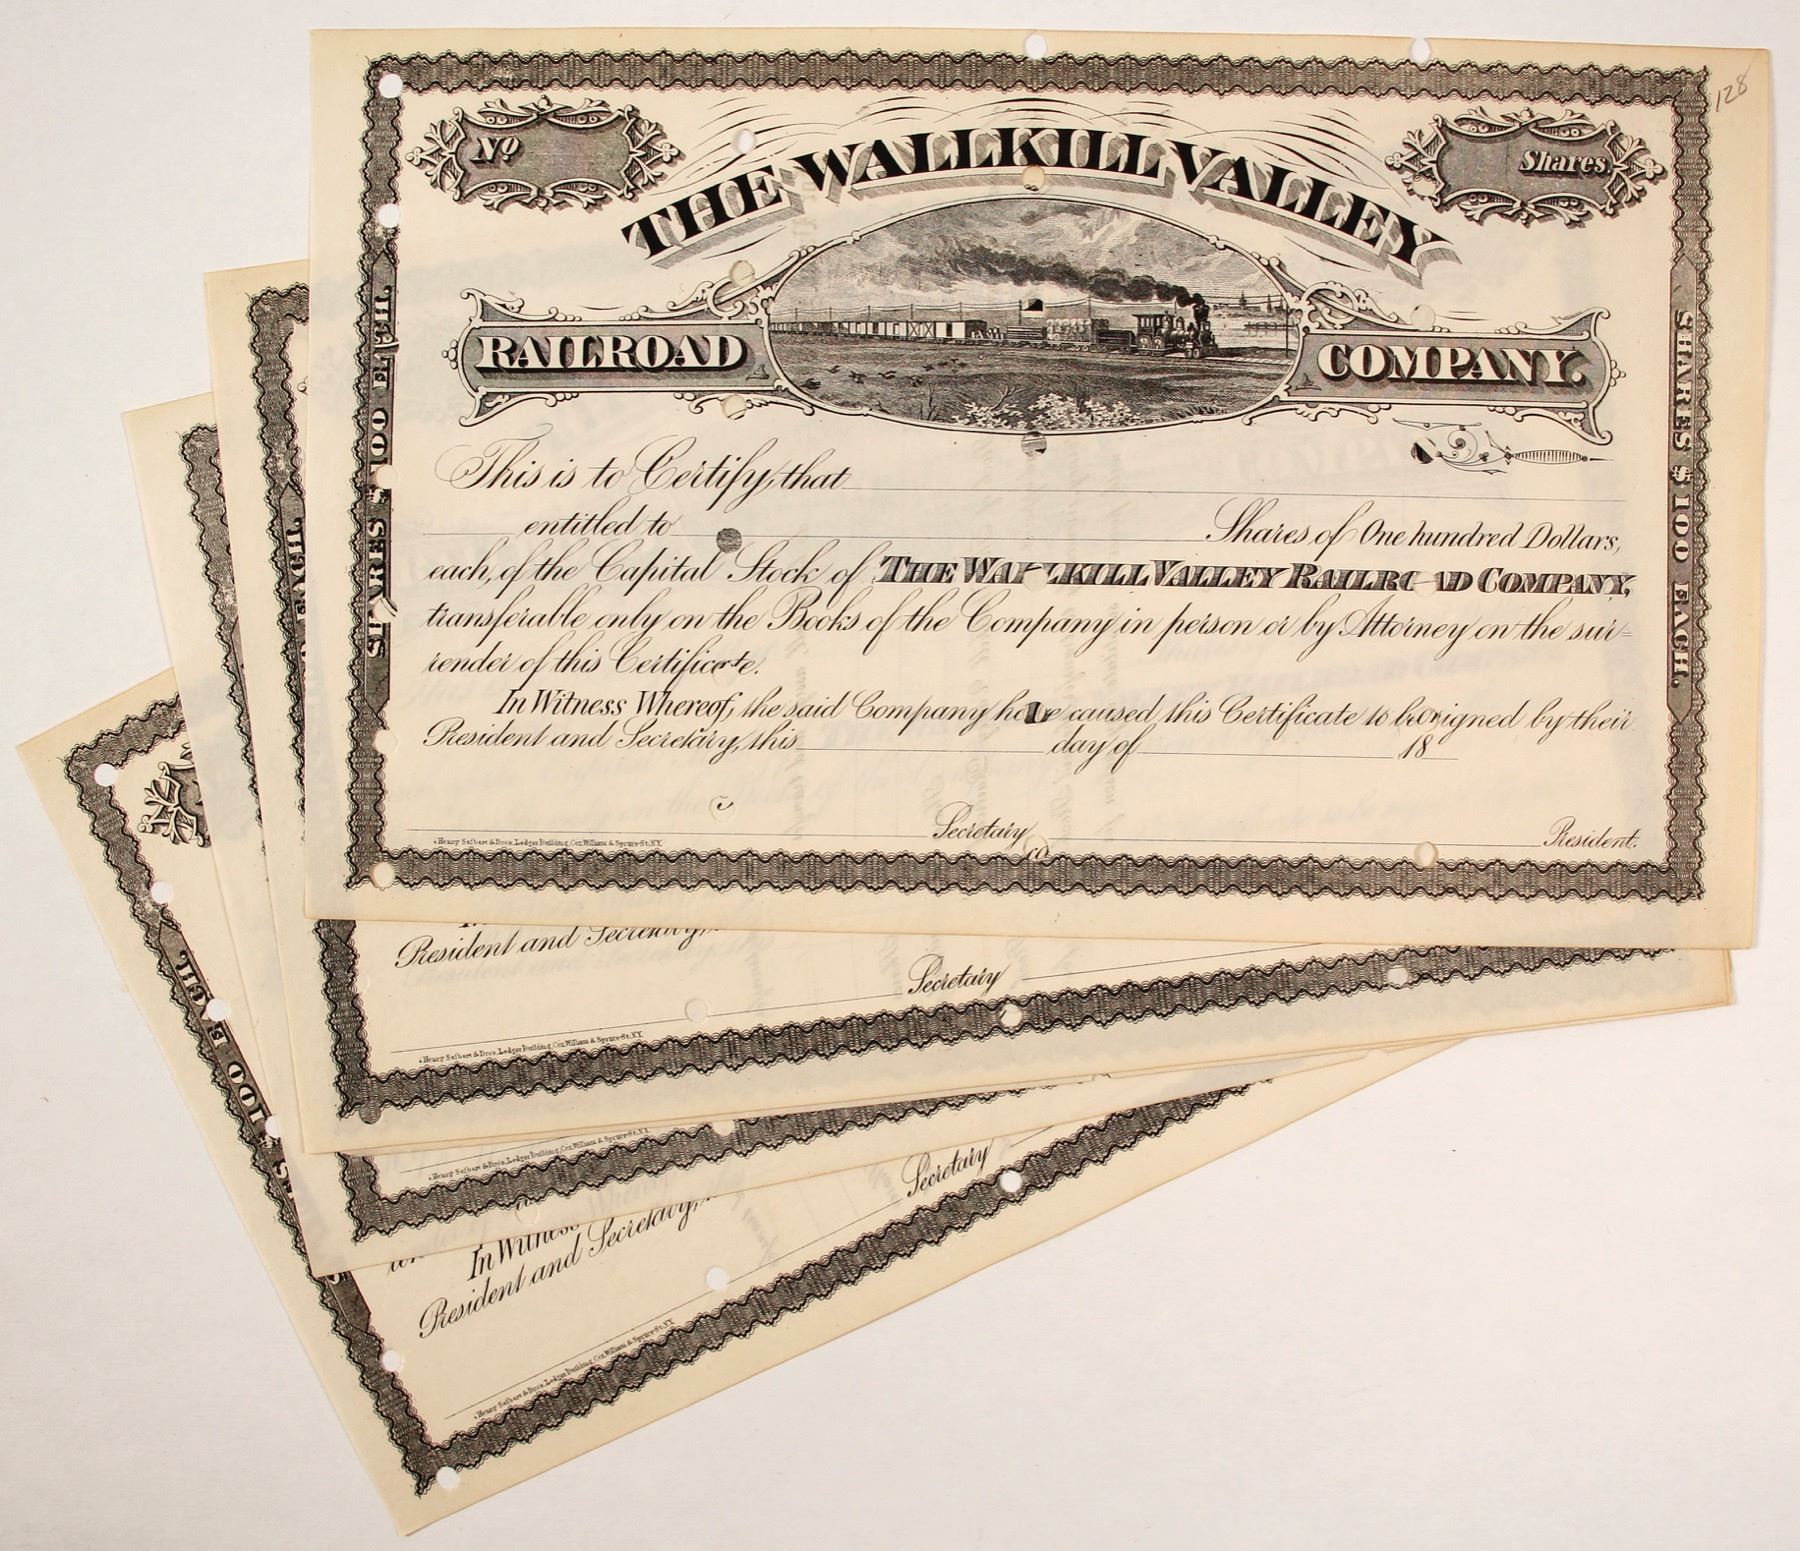 128
Nº
Shares.
THE WALLKILL VALLEY
RAILROAD
COMPANY.
SHARES $100 EACH.
SHARES $100 EACH.
This is to Certify, that
entitled to Shares of One hundred Dollars,
each, of the Capital Stock of THE WALLKILL VALLEY RAILROAD COMPANY,
transferable only on the Books of the Company in person or by Attorney on the sur=
render of this Certificate.
In Witness Whereof, the said Company have caused this Certificate to be signed by their
President and Secretary, this day of 18
Secretary
President.
Henry Seibert & Bros. Ledger Building, Cor. William & Spruce St. N.Y.
EACH.
President and Secretary,
Secretary
Henry Seibert & Bros. Ledger Building, Cor. William & Spruce St. N.Y.
Henry Seibert & Bros. Ledger Building, Cor. William & Spruce St. N.Y.
$100 EACH.
In Witness
President and Secretary,
Secretary
Henry Seibert & Bros. Ledger Building, Cor. William & Spruce St. N.Y.